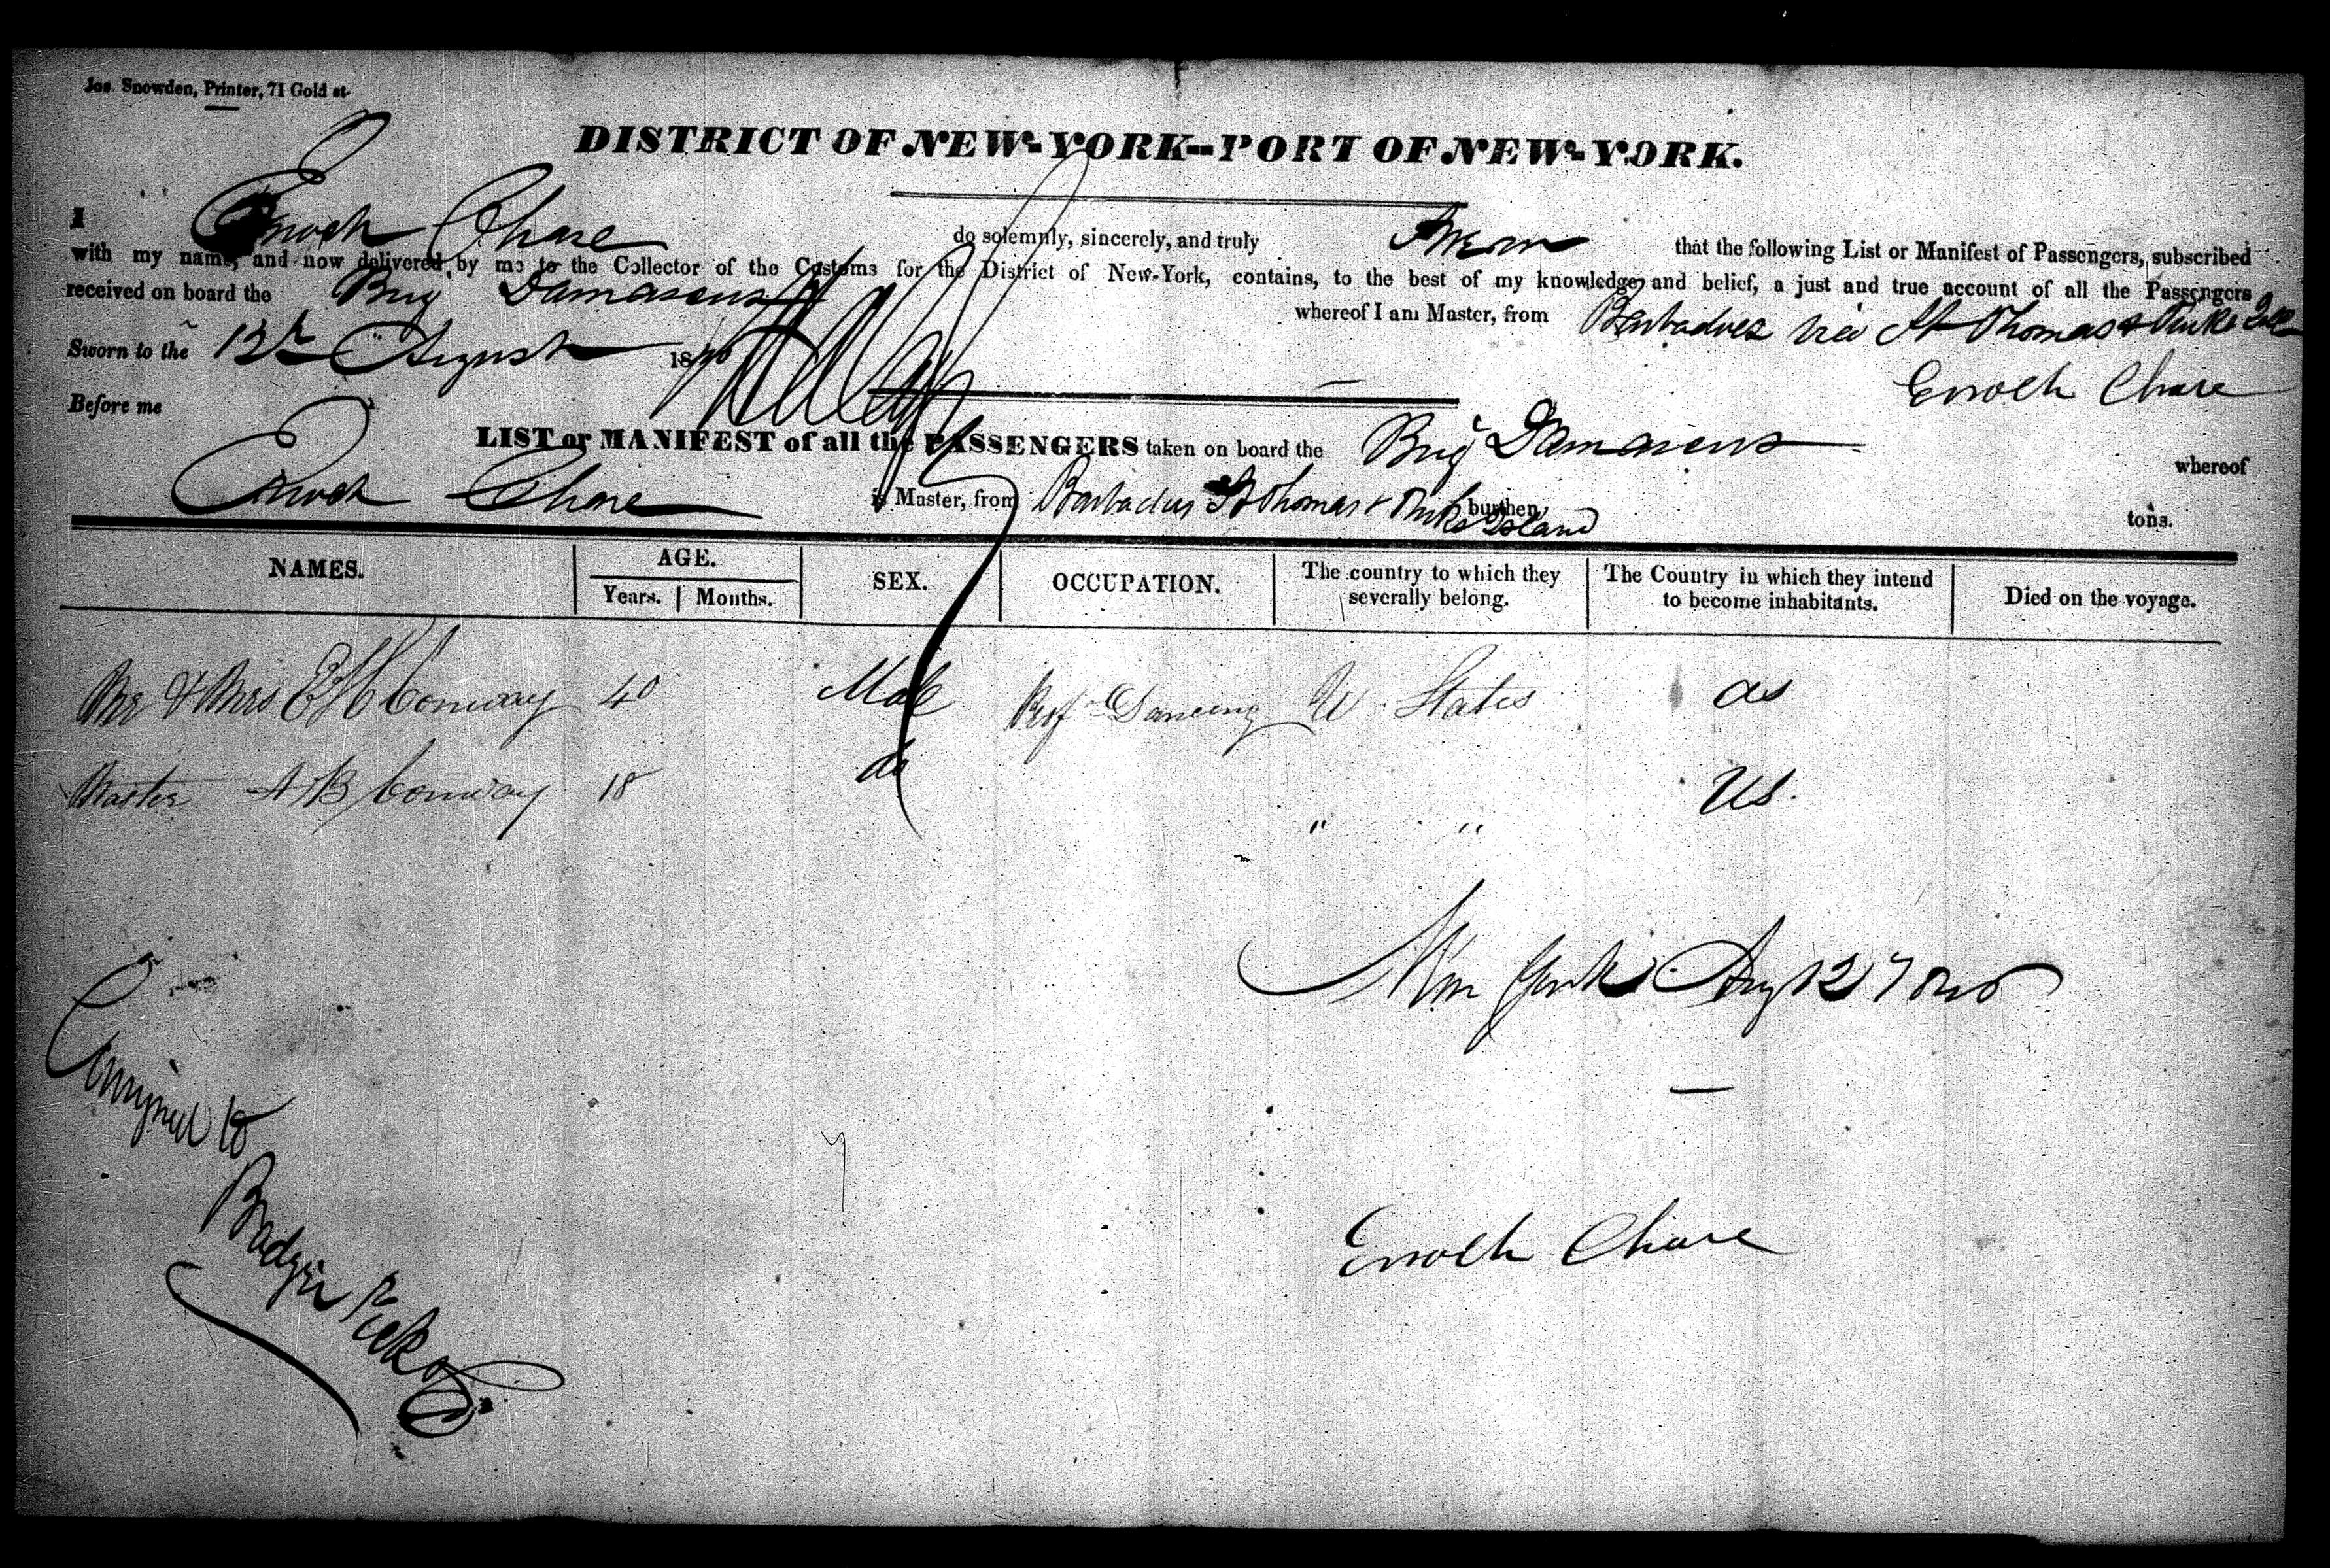 Jos. Snowden, Printer, 71 Gold st.
DISTRICT OF NEW-YORK--PORT OF NEW-YORK.
I Enoch Chase do solemnly, sincerely, and truly Swear that the following List or Manifest of Passengers, subscribed
with my name, and now delivered by me to the Collector of the Customs for the District of New-York, contains, to the best of my knowledge and belief, a just and true account of all the Passengers
received on board the Brig Damascus whereof I am Master, from Barbadoes via St Thomas & Turks
Sworn to the 12th August 18
Enoch Chase
Before me
LIST or MANIFEST of all the PASSENGERS taken on board the Brig Damascus whereof
Enoch Chase is Master, from Barbadus St Thomas & Turks Island burthen, tons.
NAMES. AGE. Years. Months. SEX. OCCUPATION. The country to which they severally belong. The Country in which they intend to become inhabitants. Died on the voyage.
Mr & Mrs E H Conway 40 Male Prof Dancing U States
Master A B Conway 18 do " " US.
New York Aug 12
Consigned to
Enoch Chase
Badger Peck & Co